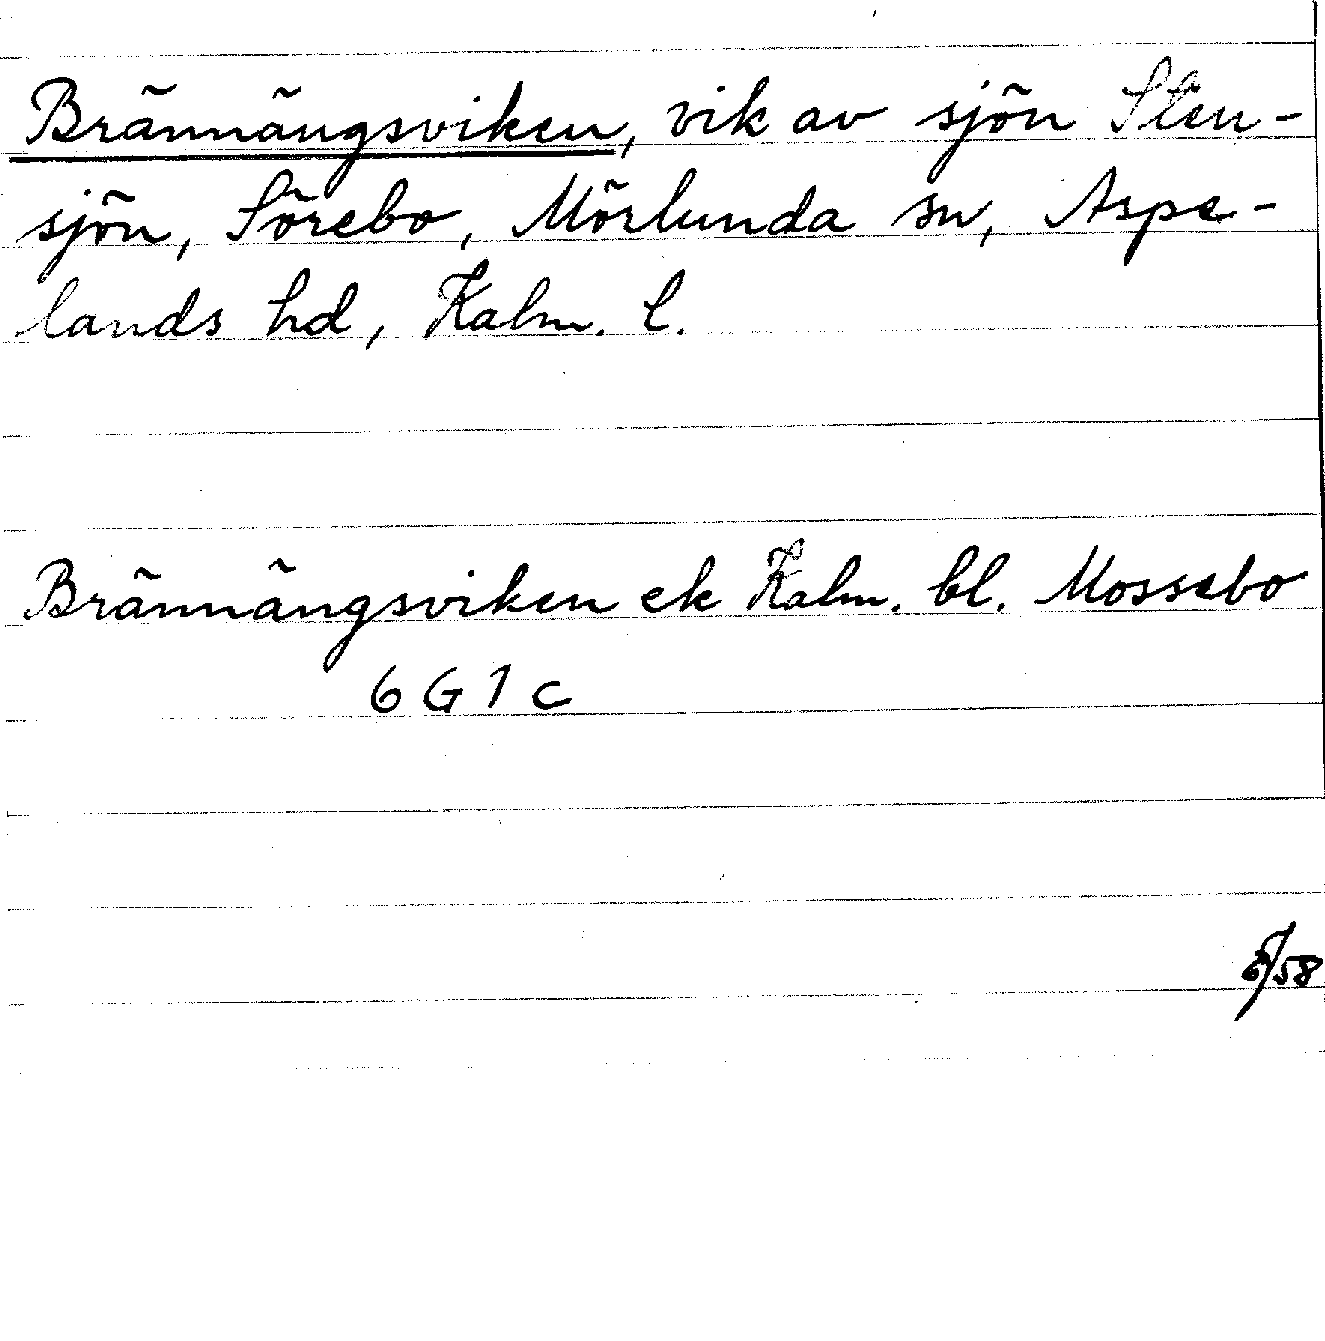 Brännängsviken, vik av sjön Sten-
sjön, Sörebo, Mörlunda sn, Aspe-
lands hd, Kalm. l.
Brännängsviken ek Kalm. bl. Mossebo
6 G 1 c